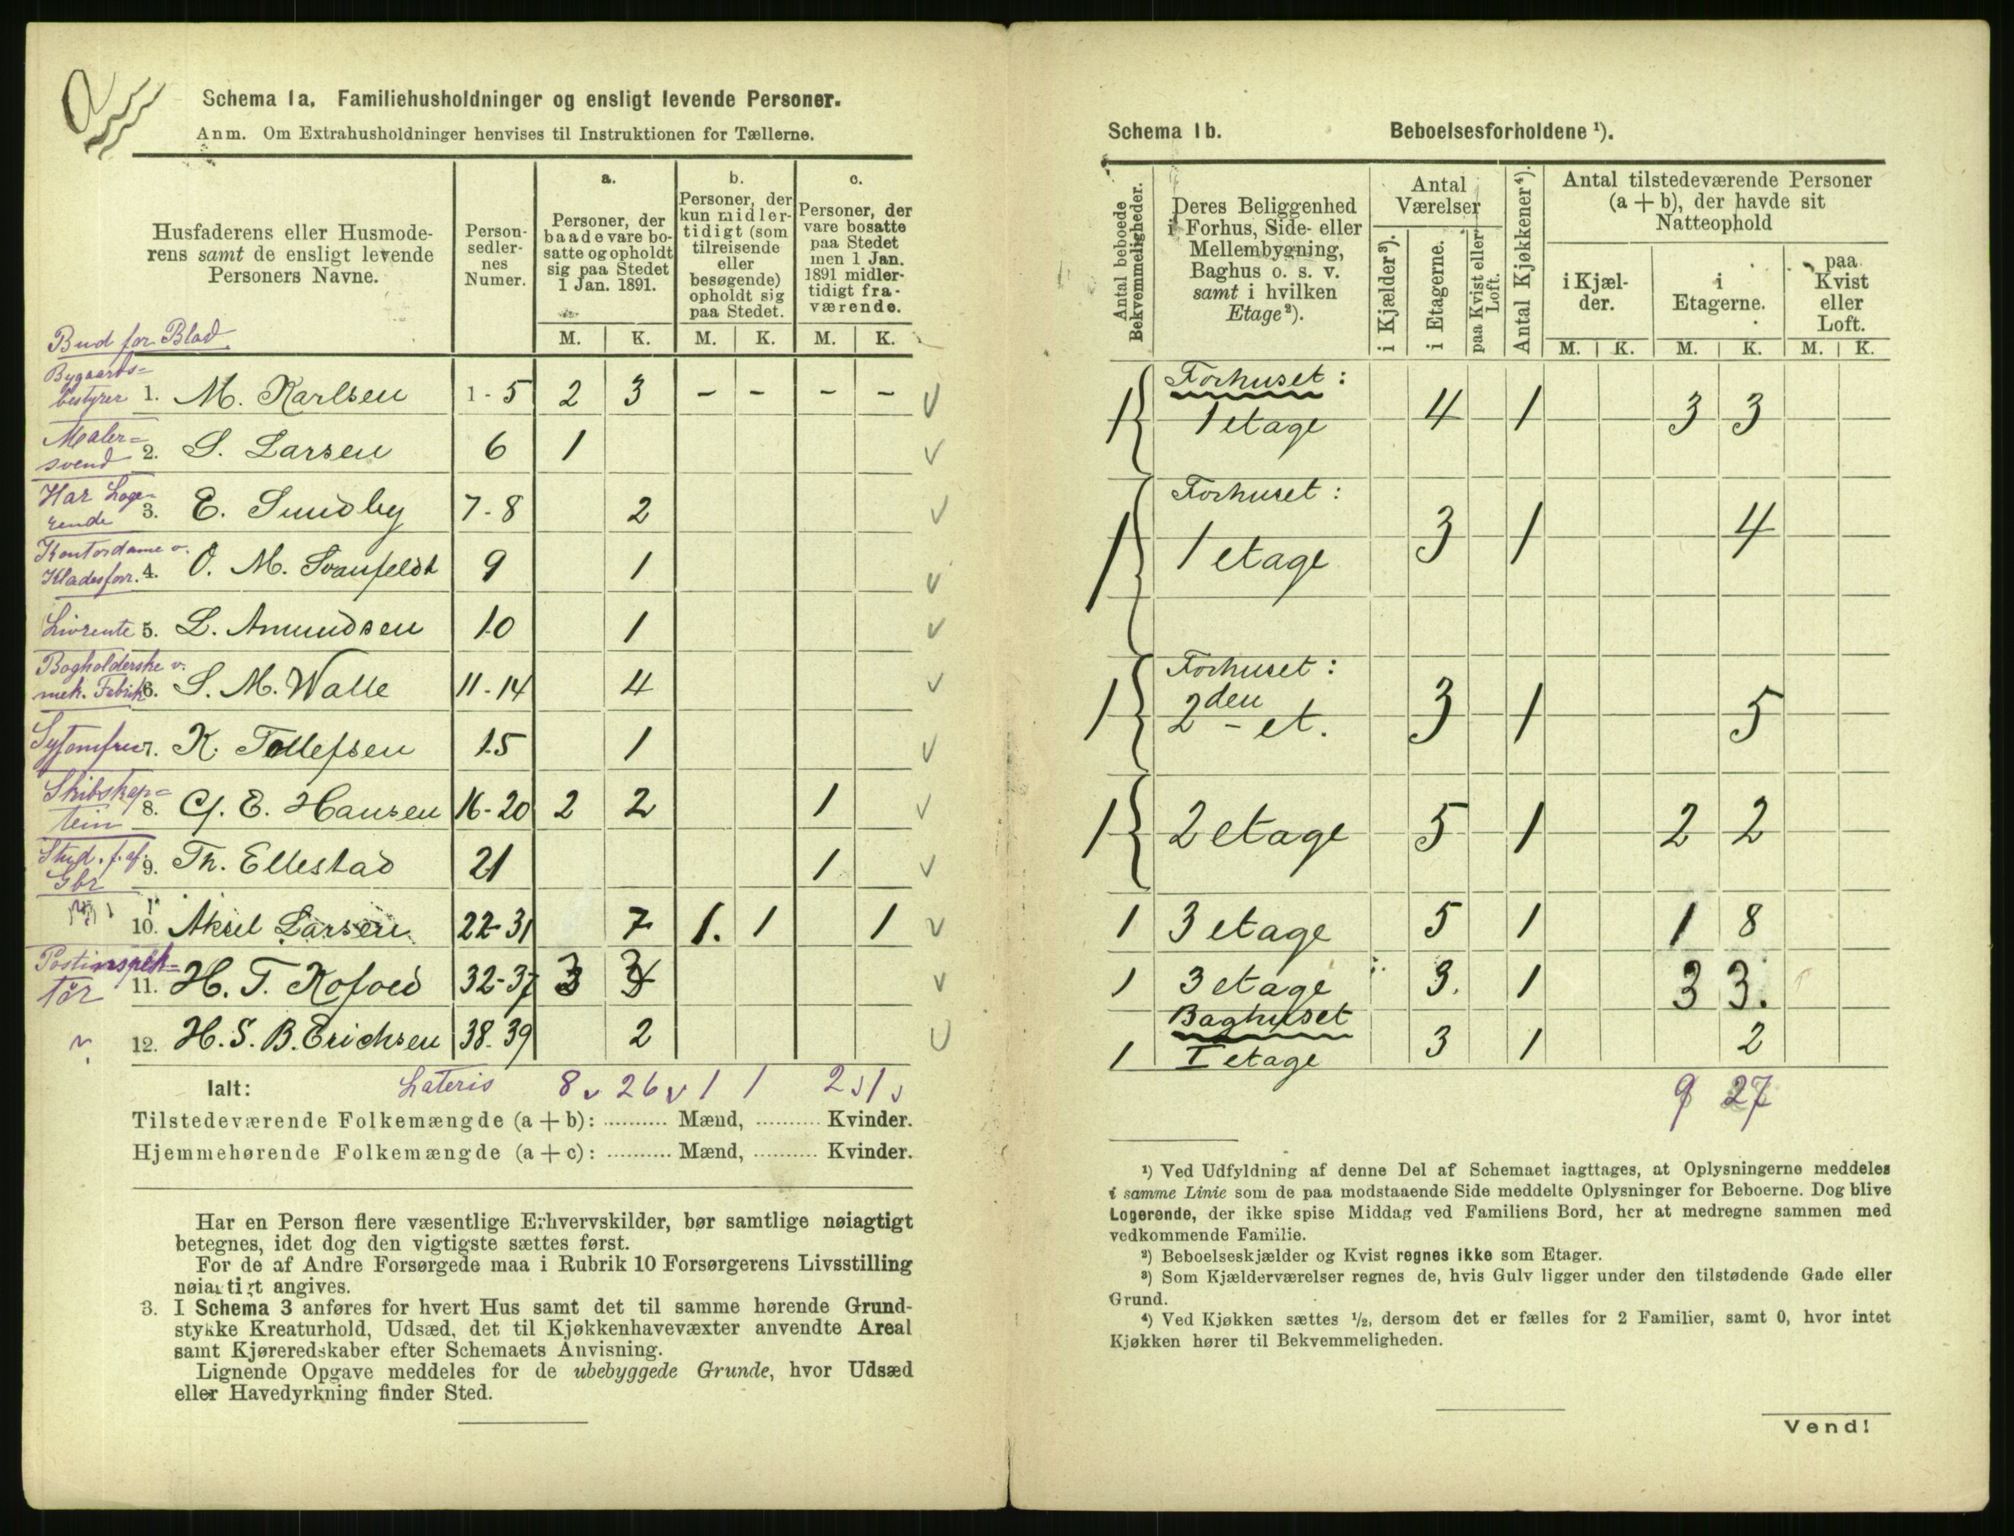 Schema 1a. Familiehusholdninger og ensligt levende Personer.
Anm. Om Extrahusholdninger henvises til Instruktionen for Tællerne.
Husfaderens eller Husmoderens samt de ensligt levende Personers Navne.
Personsedlernes Numer.
a.
Personer, der baade vare bosatte og opholdt sig paa Stedet 1 Jan. 1891.
b.
Personer, der kun midlertidigt (som tilreisende eller besøgende) opholdt sig paa Stedet.
c.
Personer, der vare bosatte paa Stedet men 1 Jan. 1891 midlertidigt fraværende.
M. K. M. K. M. K.
Bud for Blad
Bygaards=
bestyrer 1. M. Karlsen 1-5 2 3 - - - -
Maler=
svend 2. S. Larsen 6 1
Har Loge=
rende 3. E. Sundby 7-8 2
Kontordame v.
Kladesforr. 4. O. M. Svanfeldt 9 1
Livrente 5. L. Amundsen 10 1
Bogholderske v.
mek. Fabrik 6. S. M. Walle 11-14 4
Syjomfru 7. K. Tollefsen 15 1
Skibskap=
tein 8. C. E. Hansen 16-20 2 2 1
Stud. f. af.
Gbr 9. Th. Ellestad 21 1
10. Aksel Larsen 22-31 7 1. 1 1
Postinspek=
tör 11. H. T. Kofoed 32-37 3 3
12. H. S. B. Erichsen 38.39 2
Ialt: Lateris 8 26 1 1 2 1
Tilstedeværende Folkemængde (a + b): .......... Mænd, .......... Kvinder.
Hjemmehørende Folkemængde (a + c): .......... Mænd, .......... Kvinder.
Har en Person flere væsentlige Erhvervskilder, bør samtlige nøiagtigt
betegnes, idet dog den vigtigste sættes først.
For de af Andre Forsørgede maa i Rubrik 10 Forsørgerens Livsstilling
nøiagtigt angives.
3. I Schema 3 anføres for hvert Hus samt det til samme hørende Grund-
stykke Kreaturhold, Udsæd, det til Kjøkkenhavevæxter anvendte Areal
samt Kjøreredskaber efter Schemaets Anvisning.
Lignende Opgave meddeles for de ubebyggede Grunde, hvor Udsæd
eller Havedyrkning finder Sted.
Schema 1b. Beboelsesforholdene ¹).
Antal beboede Bekvemmeligheder.
Deres Beliggenhed i Forhus, Side- eller Mellembygning, Baghus o. s. v. samt i hvilken Etage²).
Antal Værelser
i Kjælder³).
i Etagerne.
paa Kvist eller Loft.
Antal Kjøkkener⁴).
Antal tilstedeværende Personer (a + b), der havde sit Natteophold
i Kjælder.
i Etagerne.
paa Kvist eller Loft.
M. K. M. K. M. K.
Forhuset:
1 1 etage 4 1 3 3
Forhuset:
1 1 etage 3 1 4
Forhuset:
1 2den et. 3 1 5
1 2 etage 5 1 2 2
1 3 etage 5 1 1 8
1 3 etage 3. 1 3 3.
Baghuset
1 I etage 3 1 2
9 27
¹) Ved Udfyldning af denne Del af Schemaet iagttages, at Oplysningerne meddeles
i samme Linie som de paa modstaaende Side meddelte Oplysninger for Beboerne. Dog blive
Logerende, der ikke spise Middag ved Familiens Bord, her at medregne sammen med
vedkommende Familie.
²) Beboelseskjælder og Kvist regnes ikke som Etager.
³) Som Kjælderværelser regnes de, hvis Gulv ligger under den tilstødende Gade eller
Grund.
⁴) Ved Kjøkken sættes ½, dersom det er fælles for 2 Familier, samt 0, hvor intet
Kjøkken hører til Bekvemmeligheden.
Vend!